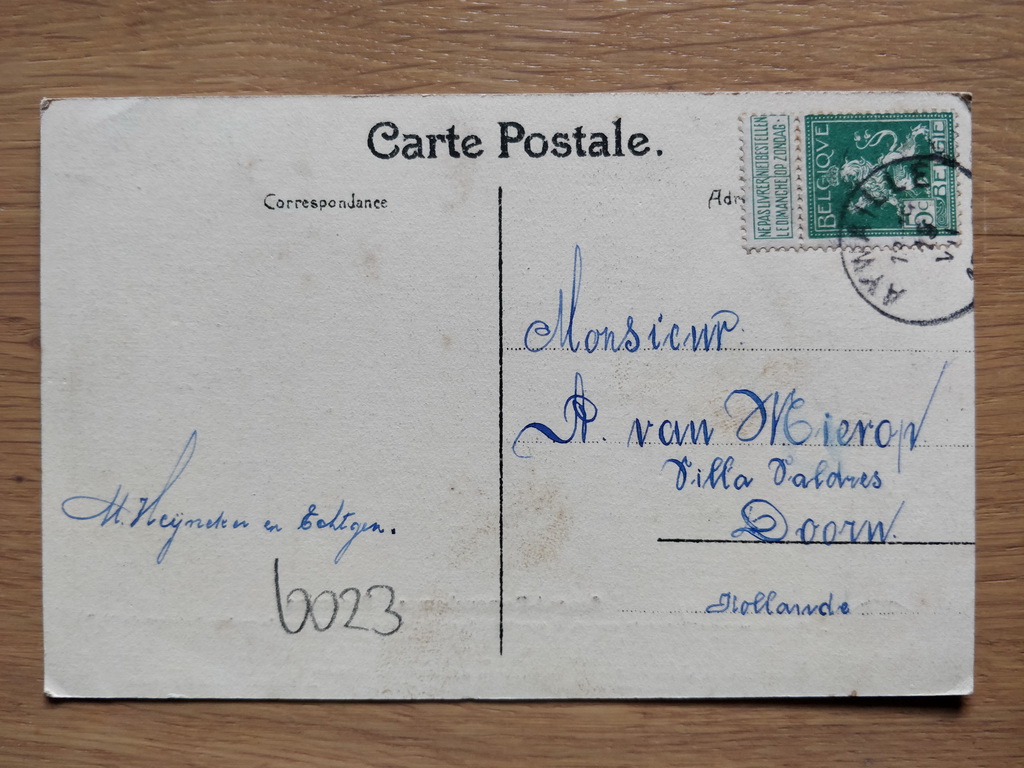 Carte Postale.
Correspondance
Adr
NE PAS LIVRER NIET BESTELLEN
LE DIMANCHE OP ZONDAG
BELGIQVE
BELGIË
5c
AYWAILLE
Monsieur
A. van Mierop
Villa Valdres
Doorn.
Hollande
M. Heyneker en Echtgen.
6023